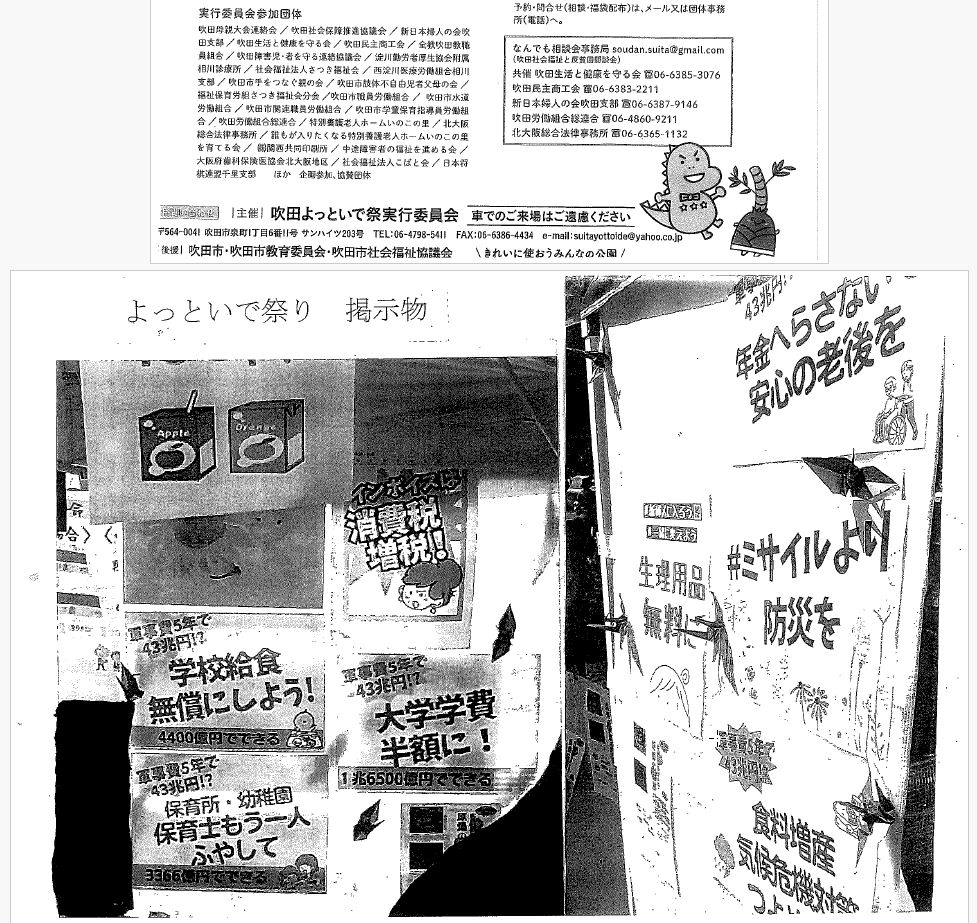 実行委員会参加団体
吹田母親大会連絡会 ／ 吹田社会保障推進協議会 ／ 新日本婦人の会吹
田支部 ／ 吹田生活と健康を守る会 ／ 吹田民主商工会 ／ 全教吹田教職
員組合 ／ 吹田障害児・者を守る連絡協議会 ／ 淀川勤労者厚生協会附属
相川診療所 ／ 社会福祉法人さつき福祉会 ／ 西淀川医療労働組合相川
支部 ／ 吹田市手をつなぐ親の会 ／ 吹田市肢体不自由児者父母の会 ／
福祉保育労組さつき福祉会分会 ／ 吹田市職員労働組合 ／ 吹田市水道
労働組合 ／ 吹田市関連職員労働組合 ／ 吹田市学童保育指導員労働組
合 ／ 吹田労働組合総連合 ／ 特別養護老人ホームいのこの里 ／ 北大阪
総合法律事務所 ／ 誰もが入りたくなる特別養護老人ホームいのこの里
を育てる会 ／ ㈱関西共同印刷所 ／ 中途障害者の福祉を進める会 ／
大阪府歯科保険医協会北大阪地区 ／ 社会福祉法人こばと会 ／ 日本将
棋連盟千里支部　ほか　企画参加、協賛団体
予約・問合せ(相談・福袋配布)は、メール又は団体事務
所(電話)へ。
なんでも相談会事務局 soudan.suita@gmail.com
(吹田社会福祉と反貧困懇談会)
共催 吹田生活と健康を守る会 ☎06-6385-3076
吹田民主商工会 ☎06-6383-2211
新日本婦人の会吹田支部 ☎06-6387-9146
吹田労働組合総連合 ☎06-4860-9211
北大阪総合法律事務所 ☎06-6365-1132
|主催| 吹田よっといで祭実行委員会 車でのご来場はご遠慮ください
〒564-0041 吹田市泉町1丁目6番11号 サンハイツ203号 TEL:06-4798-5411 FAX:06-6386-4434 e-mail:suitayottoide@yahoo.co.jp
後援| 吹田市・吹田市教育委員会・吹田市社会福祉協議会 \ きれいに使おうみんなの公園 /
よっといで祭り　掲示物
Apple
Orange
インボイスは
消費税
増税!!
軍事費5年で
43兆円!?
学校給食
無償にしよう!
4400億円でできる
軍事費5年で
43兆円!?
大学学費
半額に！
1兆6500億円でできる
軍事費5年で
43兆円!?
保育所・幼稚園
保育士もう一人
ふやして
3366億円でできる
43兆円!?
年金へらさない
安心の老後を
生理用品
無料に
#ミサイルより
防災を
軍事費5年で
43兆円!?
食料増産
気候危機対策